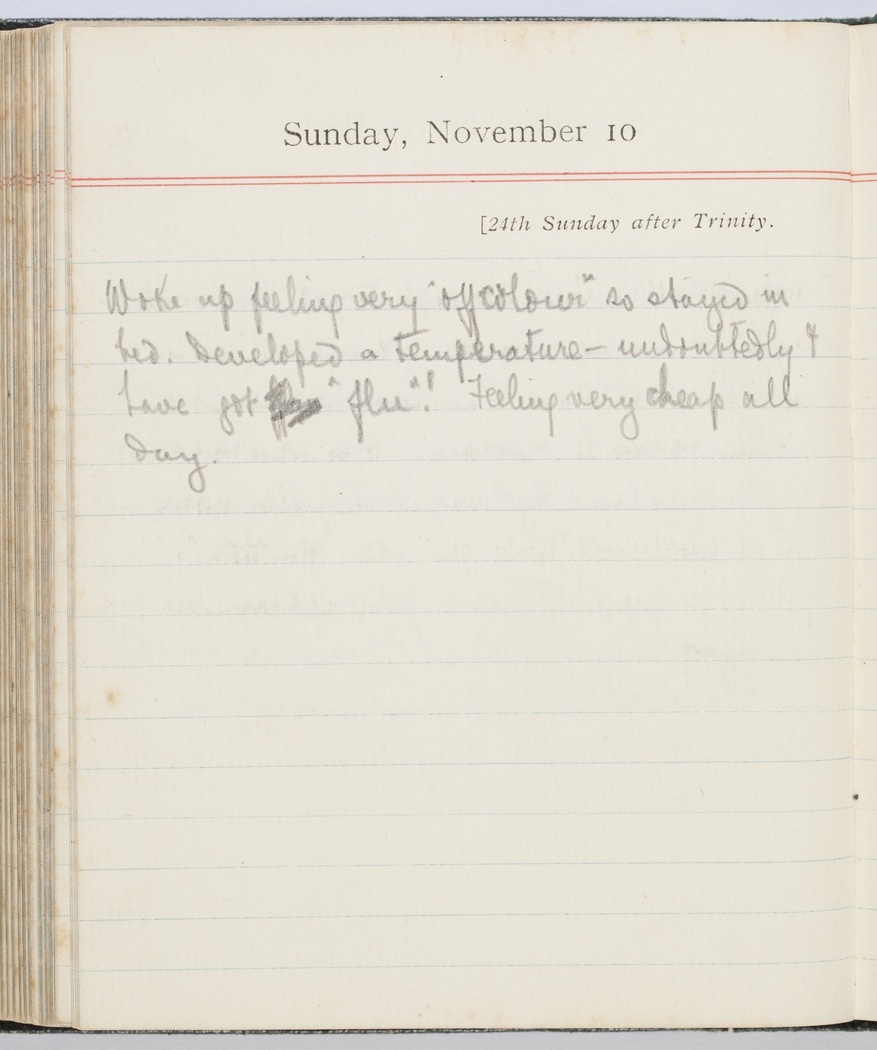 Sunday, November 10
[24th Sunday after Trinity.
Woke up feeling very "off colour" so stayed in
bed. Developed a temperature – undoubtedly I
have got "flu"! Feeling very cheap all
day.